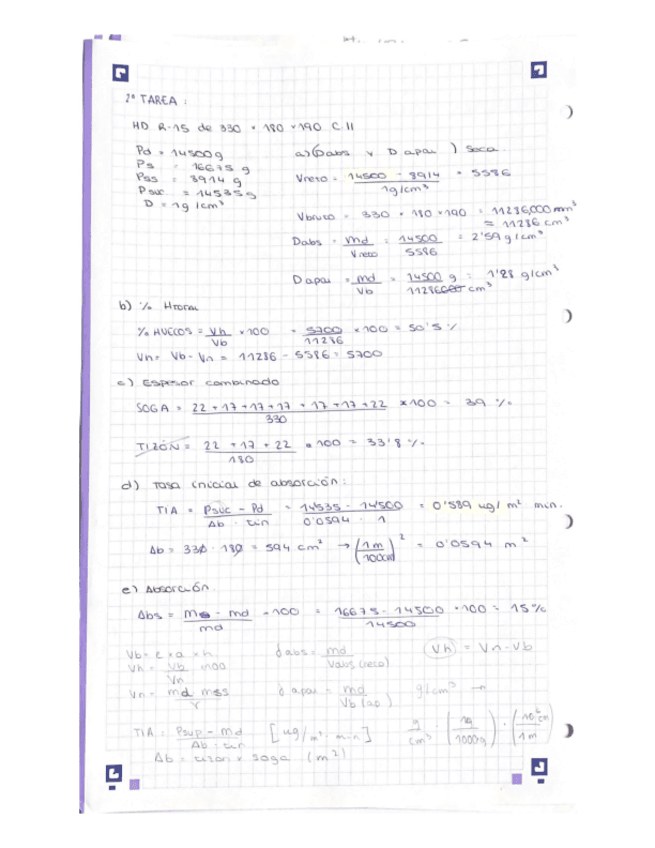 2º TAREA :
HD R-15 de 330 × 180 × 190 C II
Pd = 14500g
Ps = 16675 g
Pss = 8914 g
Psuc = 14535 g
D = 1g/cm³
a) (Dabs y D apar) seca.
Vneto = 14500 - 8914 / 1g/cm³ = 5586
Vbruto = 330 × 180 × 190 = 11286,000 mm³
= 11286 cm³
Dabs = md / Vneto = 14500 / 5586 = 2'59 g/cm³
D apar = md / Vb = 14500 g / 11286000 cm³ = 1'28 g/cm³
b) %
% HUECOS = Vh / Vb × 100 = 5700 / 11286 × 100 = 50'5 %
Vh = Vb - Vn = 11286 - 5586 = 5700
c) Espesor combinado
SOGA = 22 + 17 + 17 + 17 + 17 + 17 + 22 / 330 × 100 = 39 %
TIZÓN = 22 + 17 + 22 / 180 × 100 = 33'8 %
d) Tasa inicial de absorción :
TIA = Psuc - Pd / Ab · = 14535 - 14500 / 0'0594 · 1 = 0'589 / m² min.
Ab = 330 · 180 = 594 cm² → (1m / 100cm)² = 0'0594 m²
e) Absorción
Abs = ms - md / md × 100 = 16675 - 14500 / 14500 × 100 = 15 %
Vb = e × a × h
Vh = Vb / Vn × 100
Vn = md mss / γ
dabs = md / Vabs (neto)
d apar = md / Vb
(Vh) = Vn - Vb
g/cm³ →
TIA = Psup - md / Ab ·
Ab = tizon × soga (m²)
g / cm³ · (1g / 1000g) ·